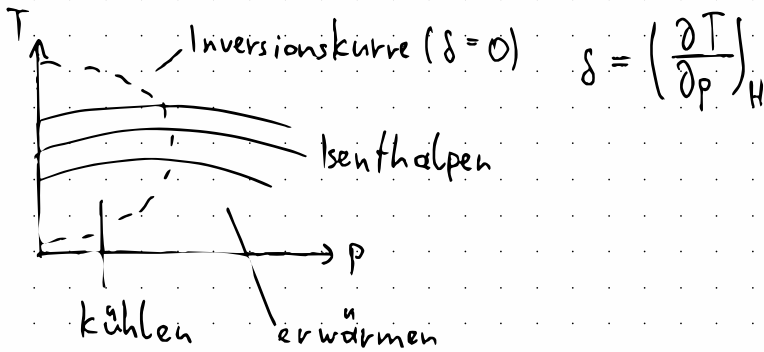 T
Inversionskurve (δ = 0)
δ = (∂T/∂p)_H
Isenthalpen
p
kühlen
erwärmen